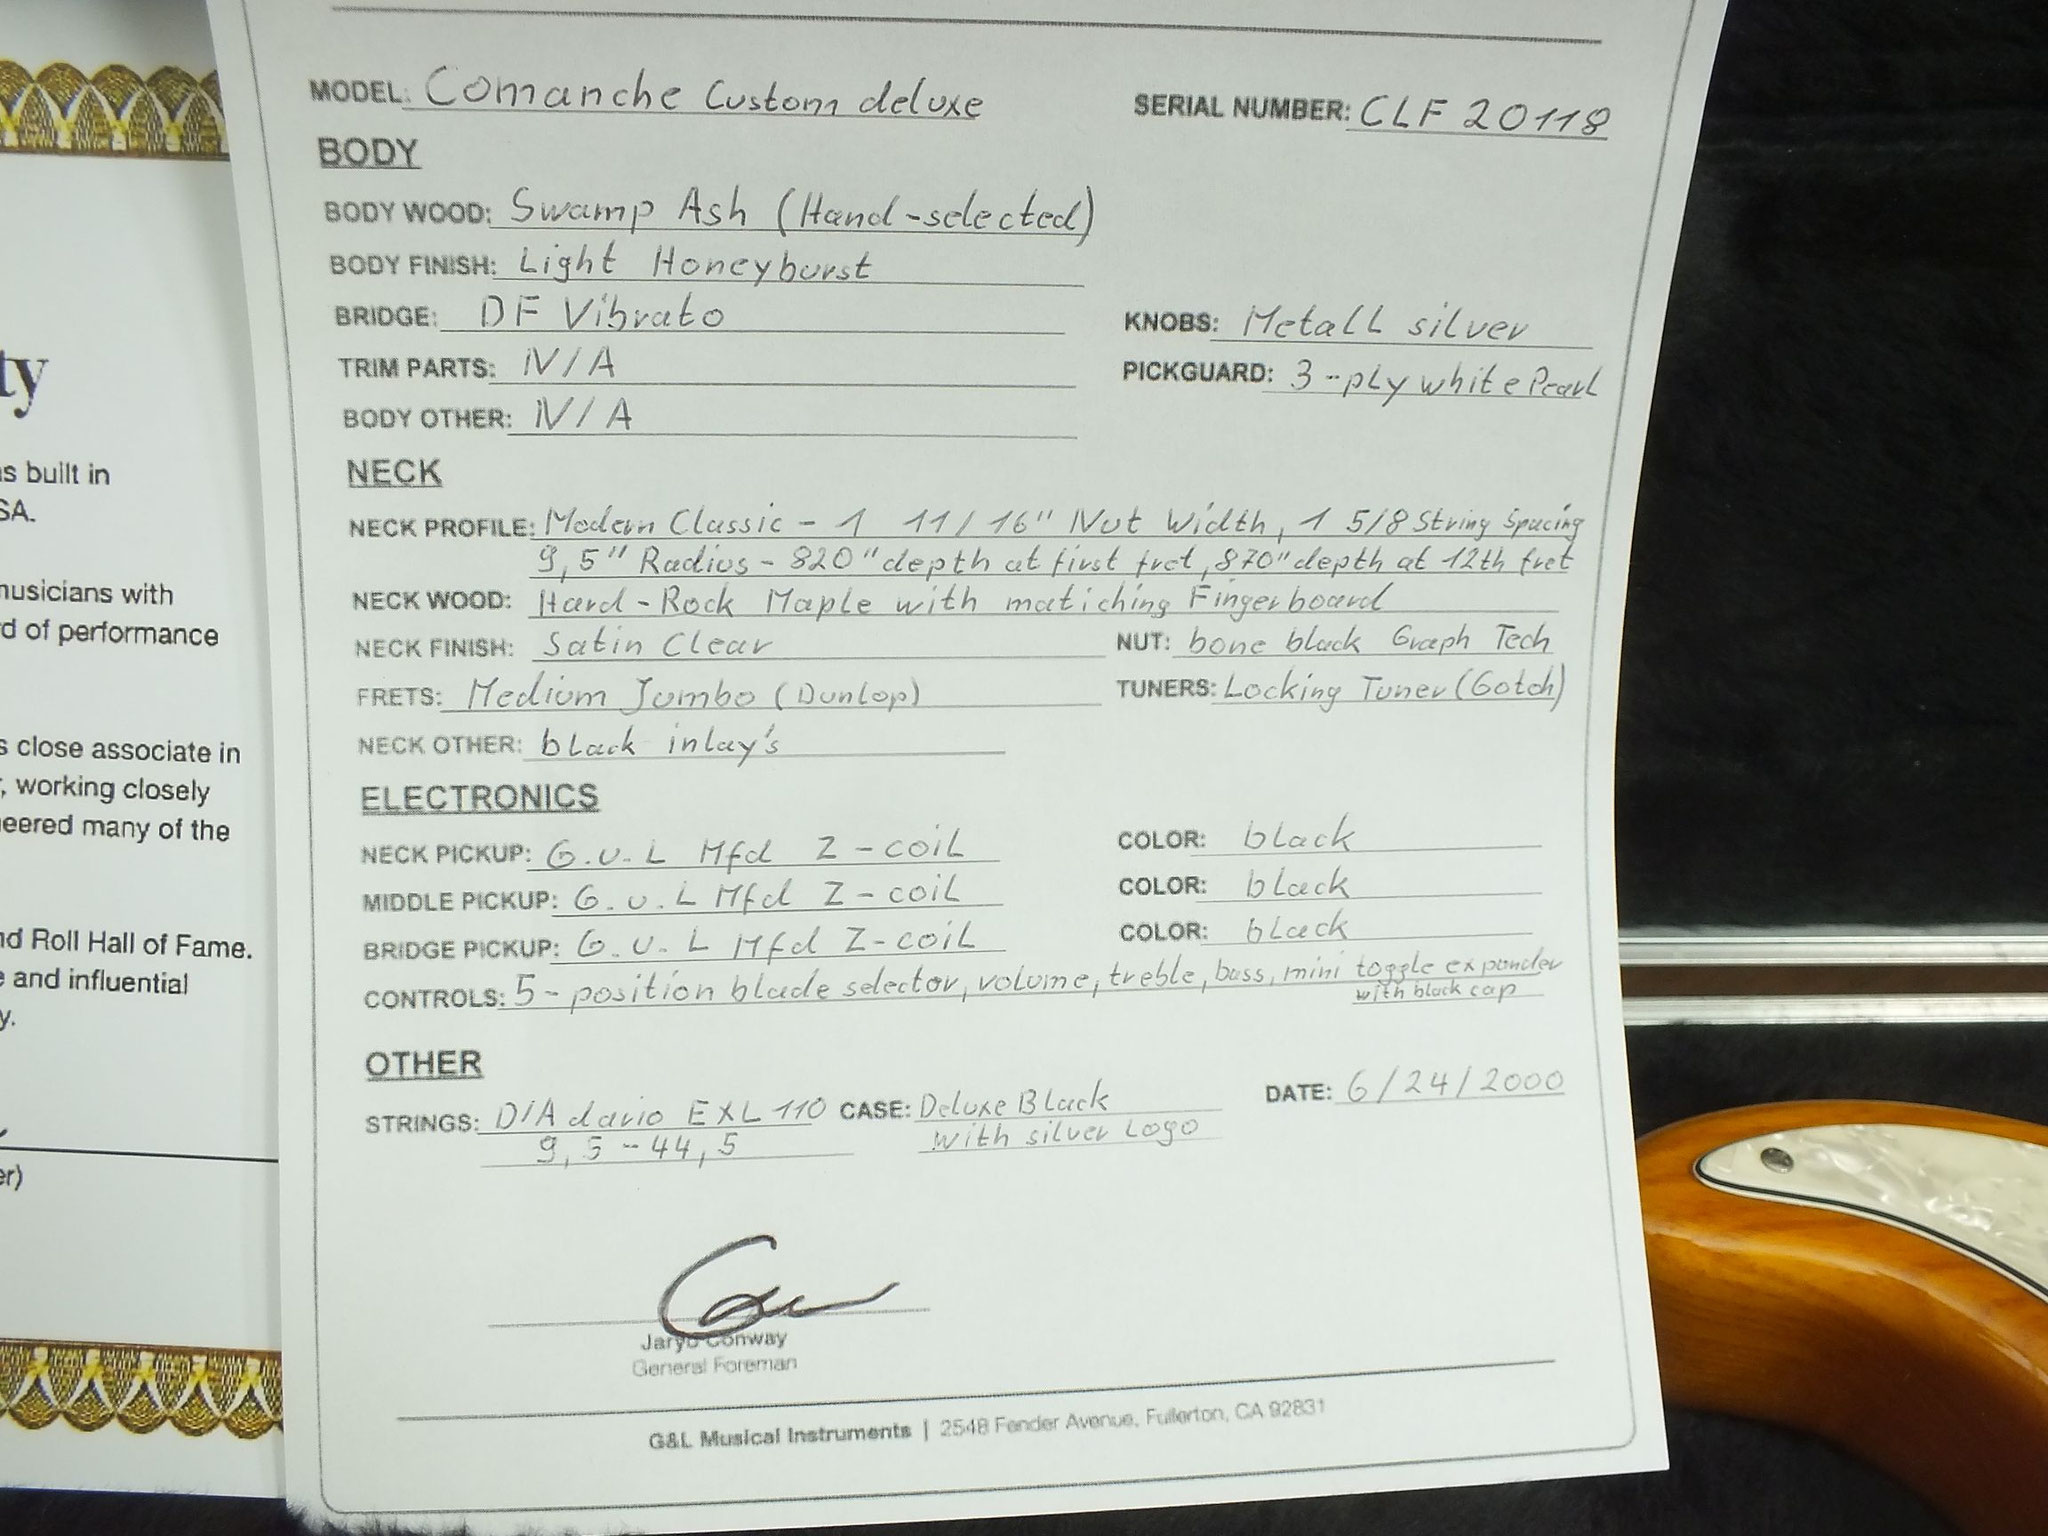 MODEL: Comanche Custom deluxe SERIAL NUMBER: CLF 20118
BODY
BODY WOOD: Swamp Ash (Hand-selected)
BODY FINISH: Light Honeyburst
BRIDGE: DF Vibrato KNOBS: Metall silver
TRIM PARTS: N/A PICKGUARD: 3-ply white Pearl
BODY OTHER: N/A
NECK
NECK PROFILE: Modern Classic - 1 11/16" Nut Width, 1 5/8 String Spacing
9,5" Radius - 820" depth at first fret, 870" depth at 12th fret
NECK WOOD: Hard-Rock Maple with matiching Fingerboard
NECK FINISH: Satin Clear NUT: bone black Graph Tech
FRETS: Medium Jumbo (Dunlop) TUNERS: Locking Tuner (Gotoh)
NECK OTHER: black inlay's
ELECTRONICS
NECK PICKUP: G.u.L Mfd Z-coil COLOR: black
MIDDLE PICKUP: G.u.L Mfd Z-coil COLOR: black
BRIDGE PICKUP: G.u.L Mfd Z-coil COLOR: black
CONTROLS: 5-position blade selector, volume, treble, bass, mini toggle expander
with black cap
OTHER
STRINGS: D'Addario EXL 110 CASE: Deluxe Black DATE: 6/24/2000
9,5-44,5 with silver Logo
Jaryd Conway
General Foreman
G&L Musical Instruments | 2548 Fender Avenue, Fullerton, CA 92831
ty
s built in
SA.
musicians with
rd of performance
s close associate in
, working closely
neered many of the
nd Roll Hall of Fame.
e and influential
y.
er)